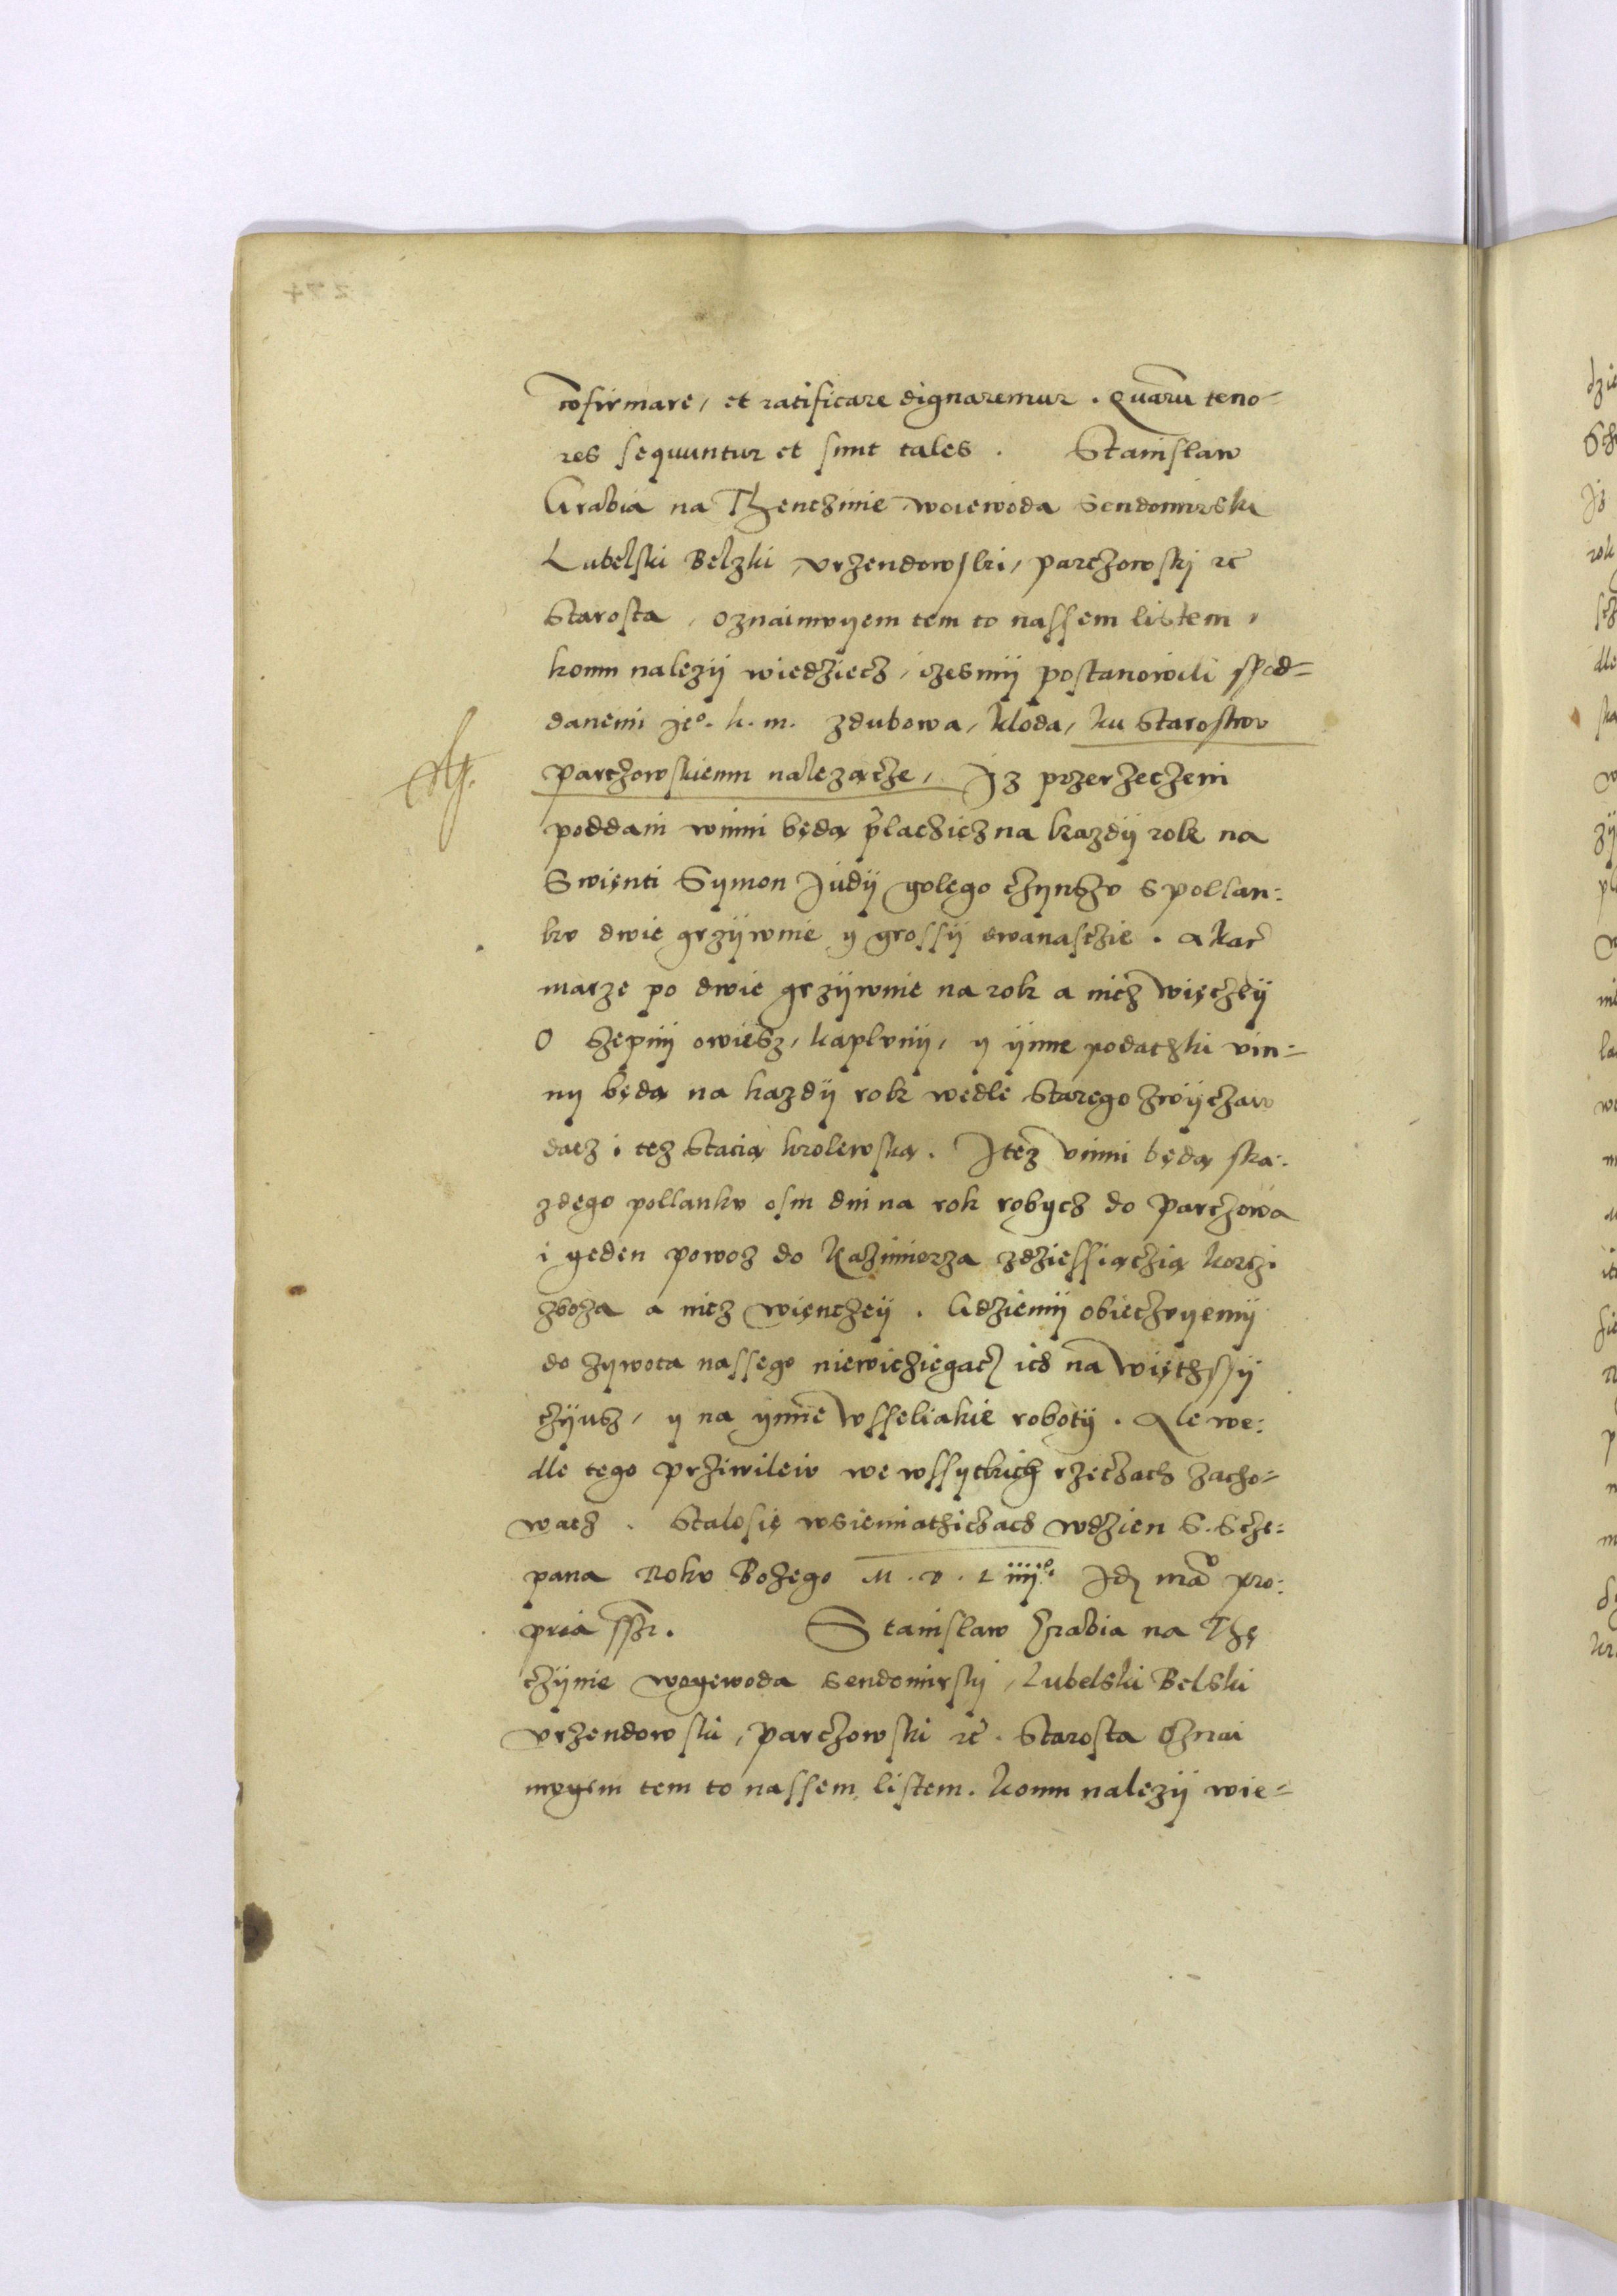 cōfirmare, et ratificare dignaremur. Quarū teno-
res sequuntur et sunt tales. Stanislaw
Grabia na Thenczinie woiewoda Sendomirski
Lubelski Belzki, vrzendowski, parczowskj rc̃
Starosta, oznaimvyem tem to nassem listem,
komu nalezÿ wiedziecz, izesmÿ postanowili spod-
danemi jeº. k. m. zdubowa, kloda, ku Starostwv
parczowskiemu nalezącze, Iz przerzeczeni
poddani winni będą placzicz na kazdÿ rok na
Swięnti Symon Judÿ golego czynszv s pollan:
kv dwie grzÿwnie y grossÿ dwanasczie. a kar̃
marze po dwie grzÿwnie na rok a nicz więczeÿ
O Szepnÿ owiesz, kaplvnÿ, y ÿnne podaczki vin-
ny będą na kazdÿ rok wedle Starego zwÿczaiv
dacz i tez Stacią krolewską. Itez vinni będą ska:
zdego pollankv osm dni na rok robycz do Parczowa
i yeden powoz do Kazimierza zdziessiączią korczi
zboza a nicz więnczeÿ. Gdziemÿ obieczvyemÿ
do zywota nassego niewicziegacz ich na więthssÿ
czÿnsz, y na ynne wsseliakie robotÿ. Ale we:
dle tego prziwileiv we wssytkich rzeczach zacho-
wacz. Stalosię wsiemiathiczach wdzien S. Scze:
pana Rokv Bozego M.D.L iiijº. Idz mã pro:
pria sszr. Stanislaw Hrabia na Thę
czÿnie woyewoda Sendomirskj, Lubelski Belski
vrzendowski, parczowski rc̃. Starosta Oznai
mvyem tem to nassem listem. komu nalezÿ wie-